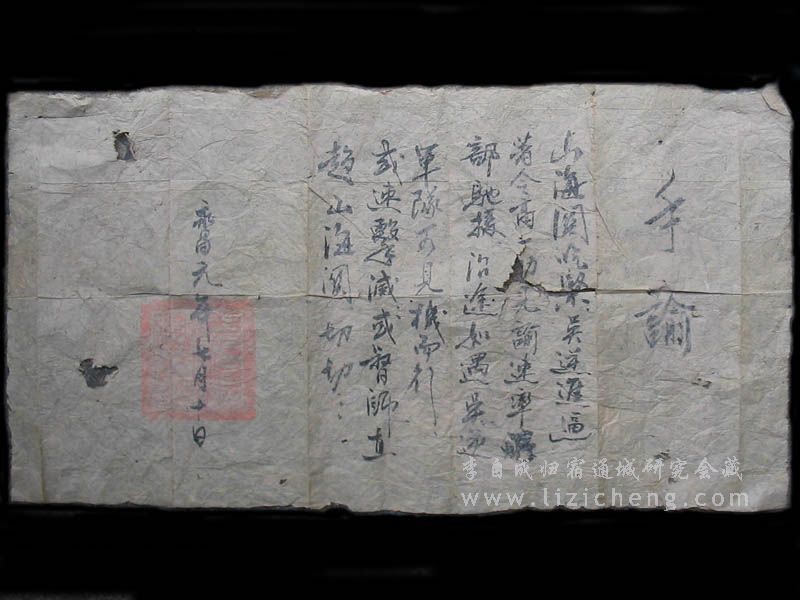 手諭
山海関吃緊吴逆進逼
着令高一功見諭速率
部馳援沿途如遇吴逆
軍隊可見機而行
或速擊滅或督師直
趋山海関切切
永昌元年七月十日
李自成归宿通城研究会藏
www.lizicheng.com